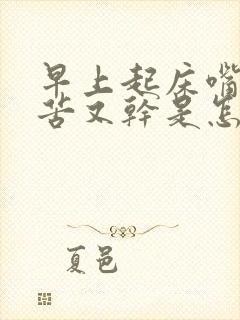 早上起床嘴
苦又幹是怎
夏邑